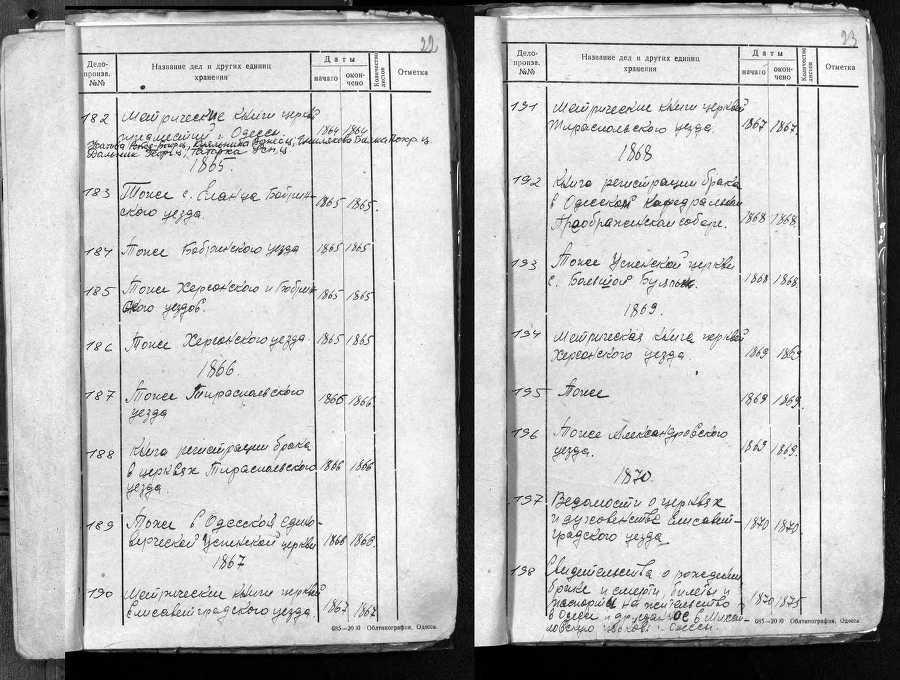 22
Дело-
произв.
№№
Название дел и других единиц
хранения
Даты
начаго
окон-
чено
Количество
листов
Отметка
182 Метрические книги церквей
предместий г. Одессы 1864 1864
Дальник
1865.
183 Тоже с. Еланца Бобрин-
ского уезда. 1865 1865.
184 Тоже Бобринского уезда 1865 1865
185 Тоже Херсонского и Бобрин-
ского уездов. 1865 1865
186 Тоже Херсонского уезда. 1865 1865
1866.
187 Тоже Тираспольского
уезда 1866 1866
188 Книга регистрации брака
в церквях Тираспольского
уезда. 1866 1866
189 Тоже в Одесской едино-
верческой Успенской церкви 1866 1866
1867
190 Метрические книги церквей
Елисаветградского уезда 1867 1867
685—20 Ю Облтипография, Одесса
23
Дело-
произв.
№№
Название дел и других единиц
хранения
Даты
начаго
окон-
чено
Количество
листов
Отметка
191 Метрические книги церквей
Тираспольского уезда. 1867 1867.
1868
192 Книга регистрации брака
в Одесском Кафедральном
Преображенском соборе. 1868 1868.
193 Тоже Успенской церкви
с. Большой Буялык. 1868 1868.
1869.
194 Метрическая книга церквей
Херсонского уезда. 1869 1869
195 Тоже 1869 1869.
196 Тоже Александровского
уезда. 1869 1869.
1870.
197 Ведомости о церквях
и духовенстве Елисавет-
градского уезда 1870 1870
198 Свидетельства о рождении
браке и смерти, билеты и
паспорта на жительство 1870 1875
в Одессе и
Одессы.
685—20 Ю Облтипография, Одесса